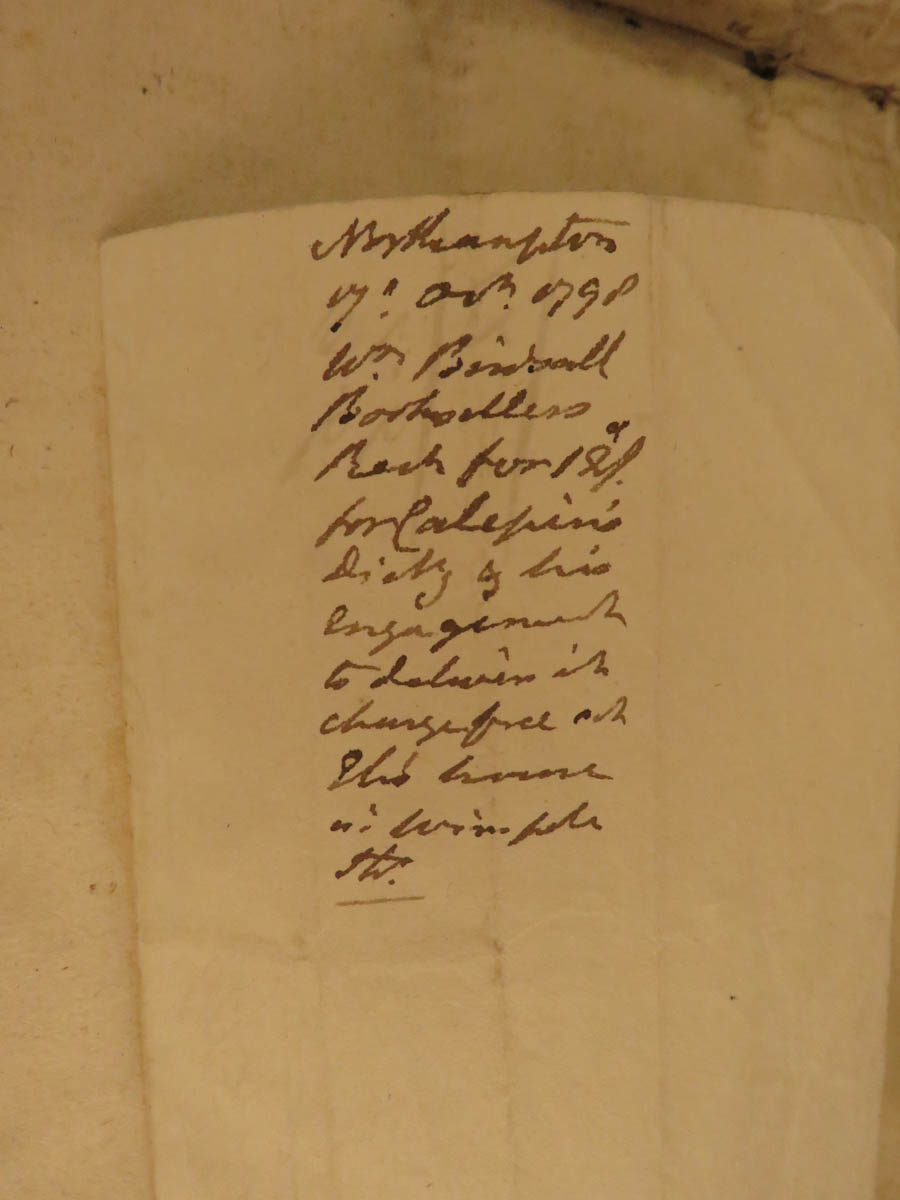 Northampton
17th Octr. 1798
Wm Birdsall
Booksellers
Rect for 18s.
for Calepin's
Dicty & his
engagement
to deliver it
charge free at
house
in Wimple
Str.